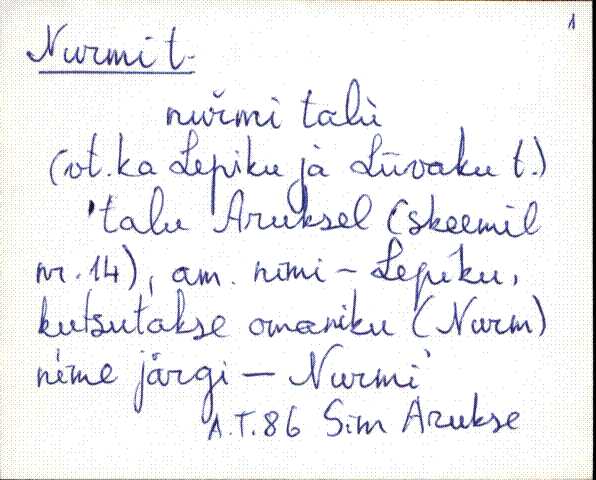 1
Nurmi t.
nuřmi talù
(vt. ka Lepiku jà Lūvaku t.)
'talu Aruksel (skeemil
nr. 14), am. nimi - Lepiku,
kutsutakse omaniku (Nurm)
nime järgi - Nurmi'
A.T.86 Sim Arukse